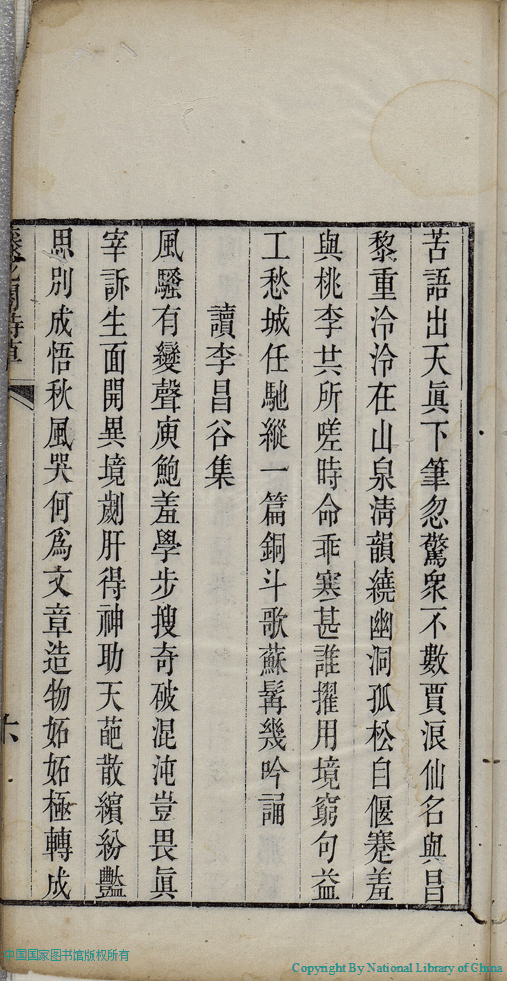 苦語出天眞下筆忽驚衆不數賈浪仙名與昌
黎重泠泠在山泉淸韻繞幽洞孤松自偃蹇羞
與桃李共所嗟時命乖寒甚誰擢用境窮句益
工愁城任馳縱一篇銅斗歌蘇髯幾吟誦
讀李昌谷集
風騷有變聲庾鮑羞學步搜奇破混沌豈畏眞
宰訴生面開異境劌肝得神助天葩散繽紛豔
思別成悟秋風哭何爲文章造物妬妬極轉成
閣詩草
六
中国国家图书馆版权所有
Copyright By National Library of China